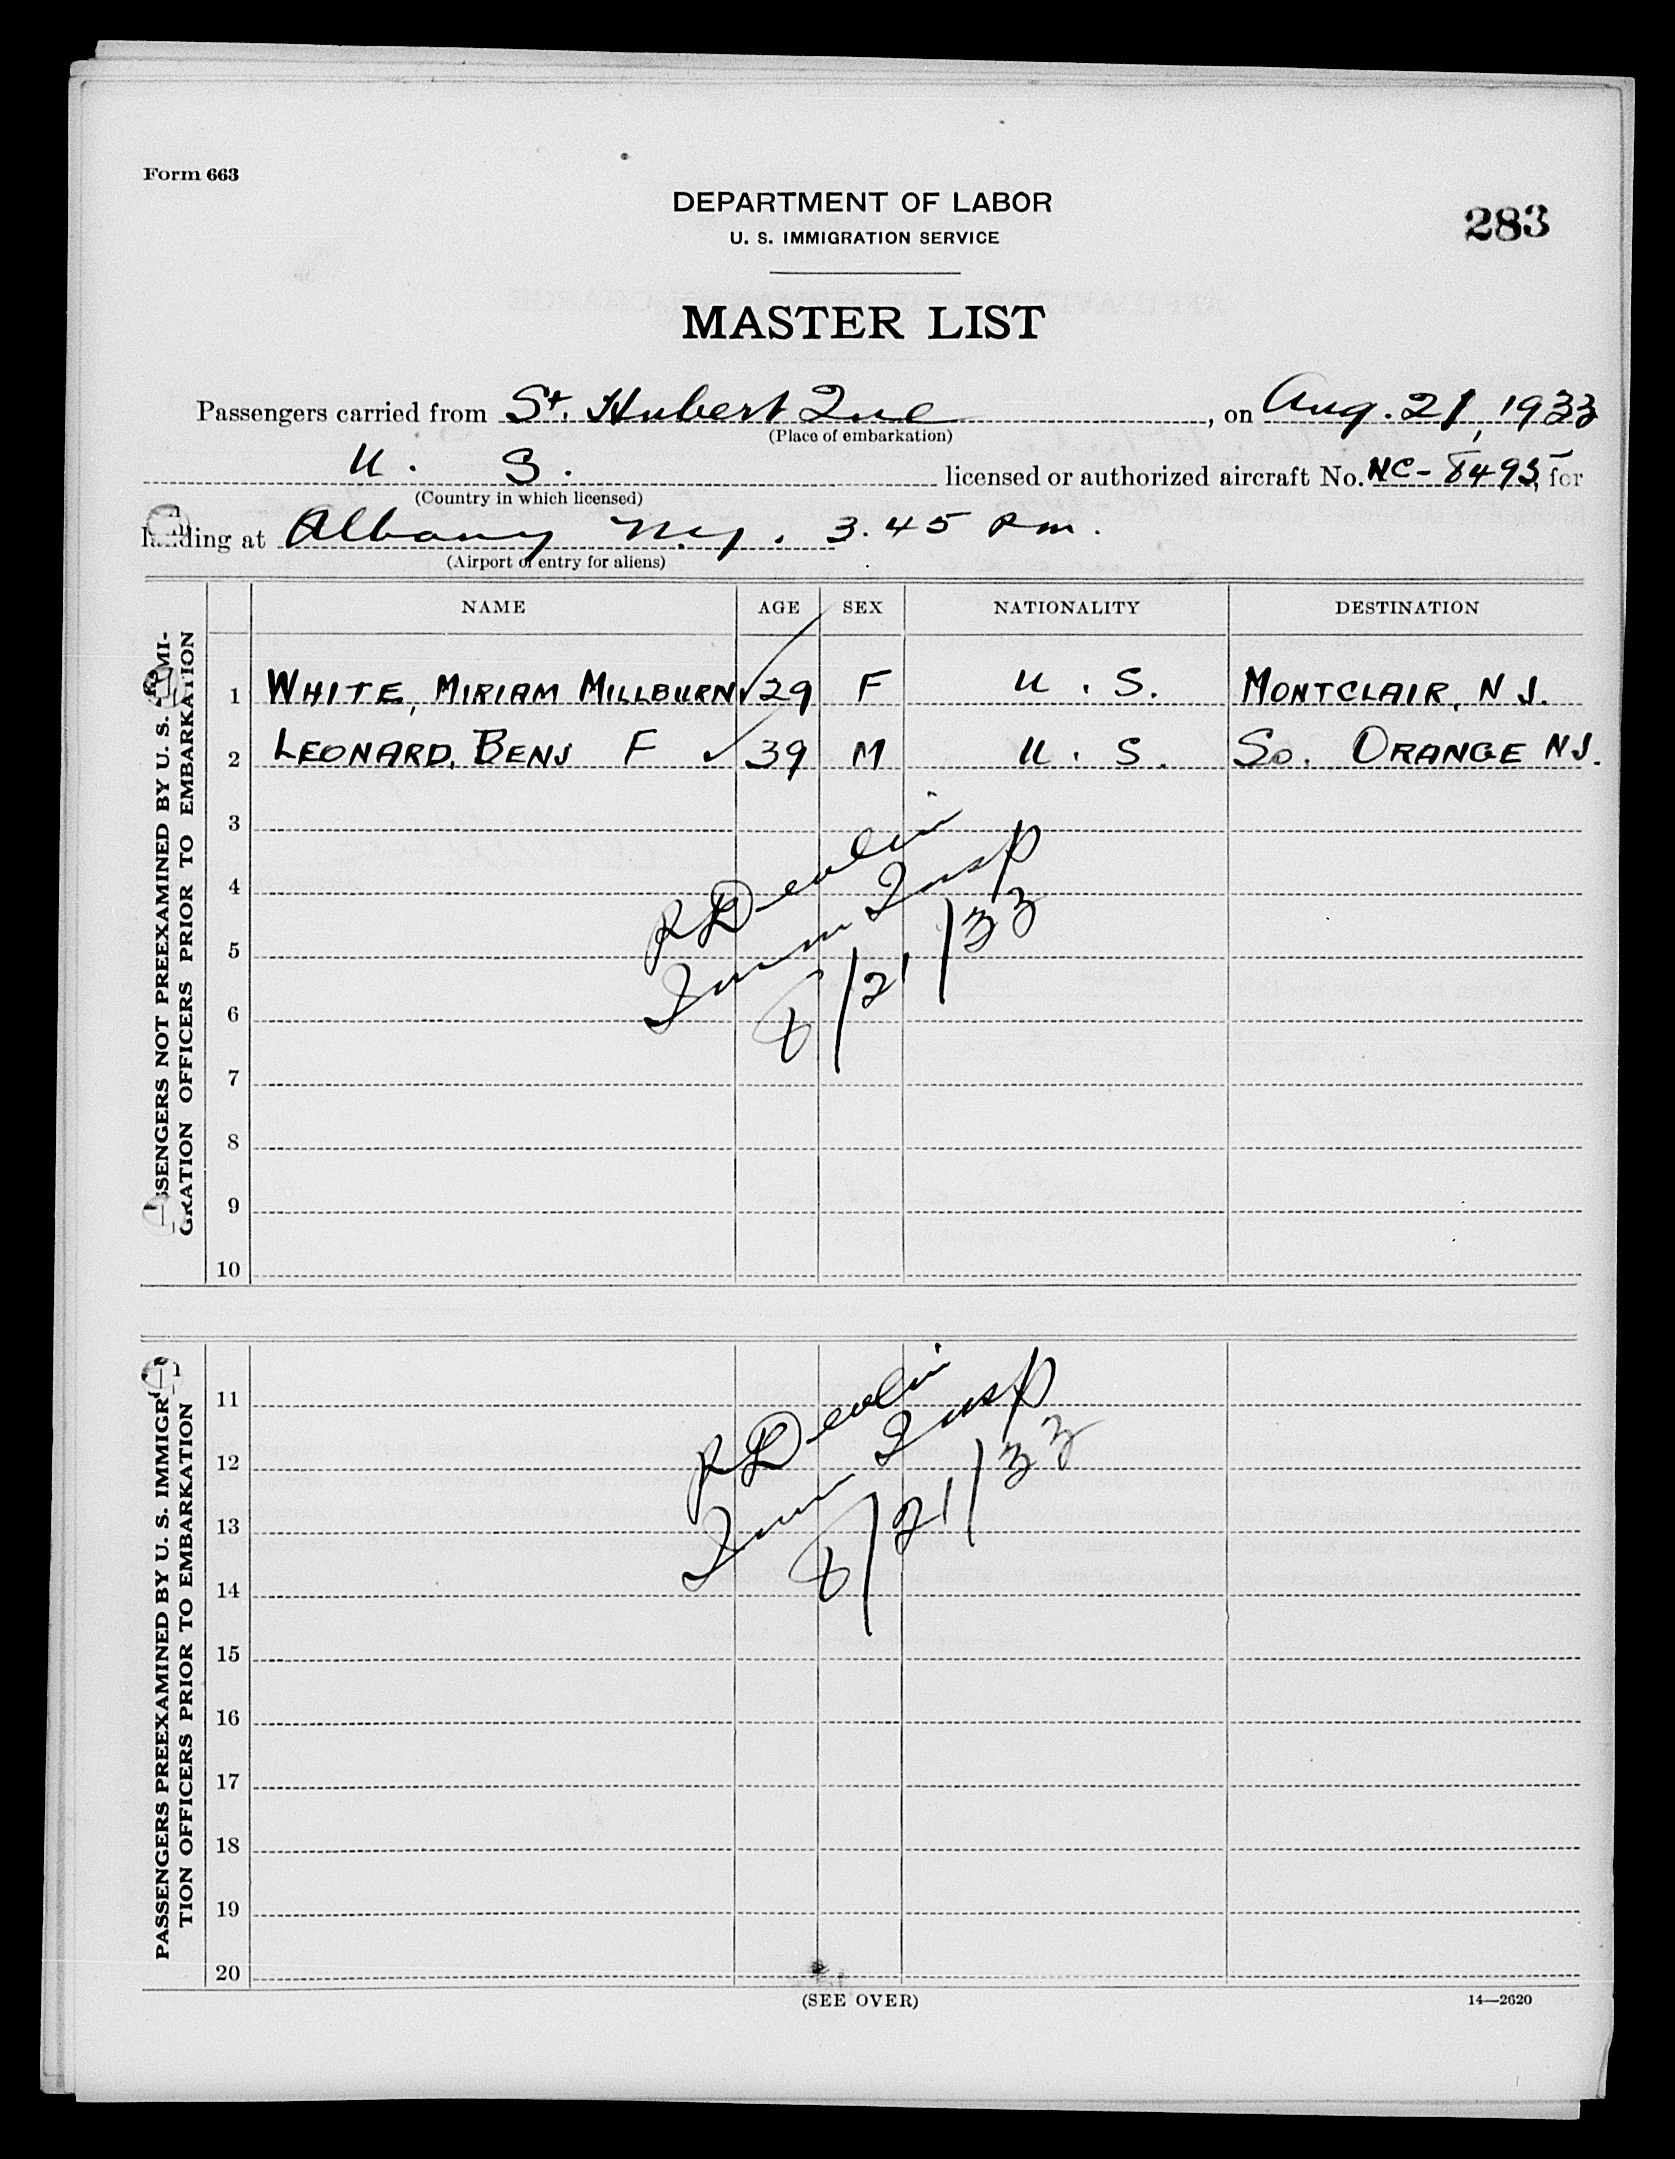 Form 663
DEPARTMENT OF LABOR
U. S. IMMIGRATION SERVICE
283
MASTER LIST
Passengers carried from St. Hubert Que, on Aug. 21, 1933
(Place of embarkation)
U. S. licensed or authorized aircraft No. NC-8495, for
(Country in which licensed)
landing at Albany N.Y. 3.45 P.m.
(Airport of entry for aliens)
NAME AGE SEX NATIONALITY DESTINATION
PASSENGERS NOT PREEXAMINED BY U. S. IMMI-
GRATION OFFICERS PRIOR TO EMBARKATION
1 WHITE, MIRIAM MILLBURN ✓ 29 F U. S. MONTCLAIR, N J.
2 LEONARD, BENJ F ✓ 39 M U. S. SO. ORANGE NJ.
3
4
5
6
7
8
9
10
R Devlin
Imm Insp
8/21/33
PASSENGERS PREEXAMINED BY U. S. IMMIGRA-
TION OFFICERS PRIOR TO EMBARKATION
11
12
13
14
15
16
17
18
19
20
R Devlin
Imm Insp
8/21/33
(SEE OVER)
14—2620